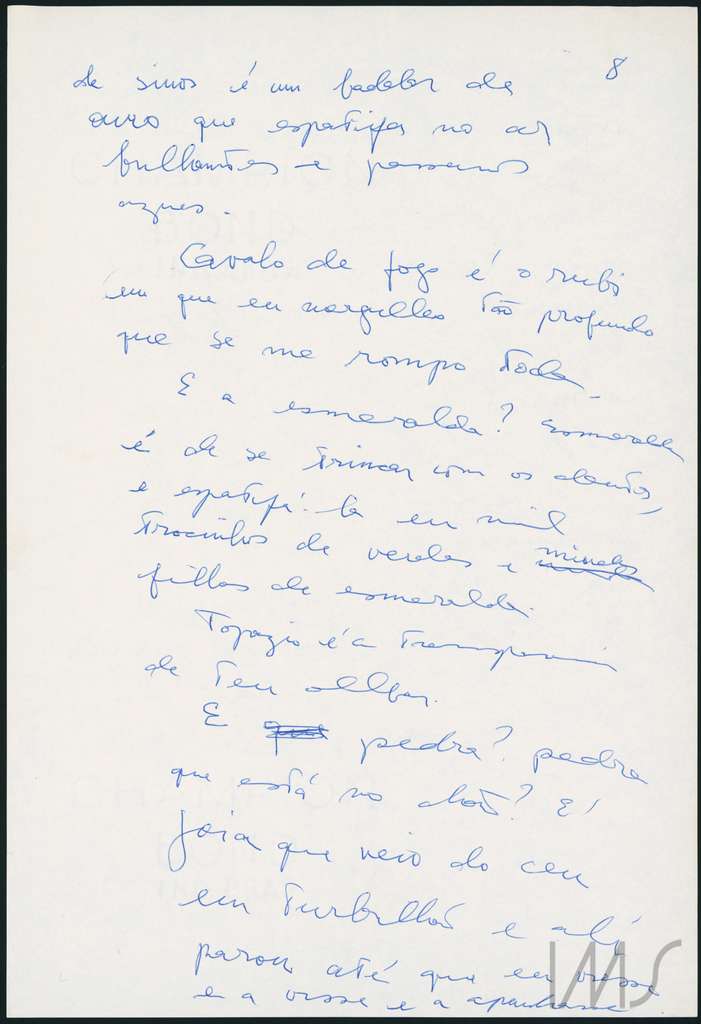 8
de sinos é um badalar de
ouro que espatifa no ar
brilhantes e pássaros
azues.
Cavalo de fogo é o rubi
em que eu mergulho tão profundo
que se me rompo toda.
E a esmeralda? Esmeralda
é de se trincar com os dentes,
e espatifá-la em mil
trocinhos de verdes e
filhas de esmeralda.
Topazio é a transparencia
de teu olhar.
E pedra? pedra
que está no chão? É
joia que veio do ceu
em turbilhão e ali
parou até que eu viesse
e a visse e a apanhasse
IMS